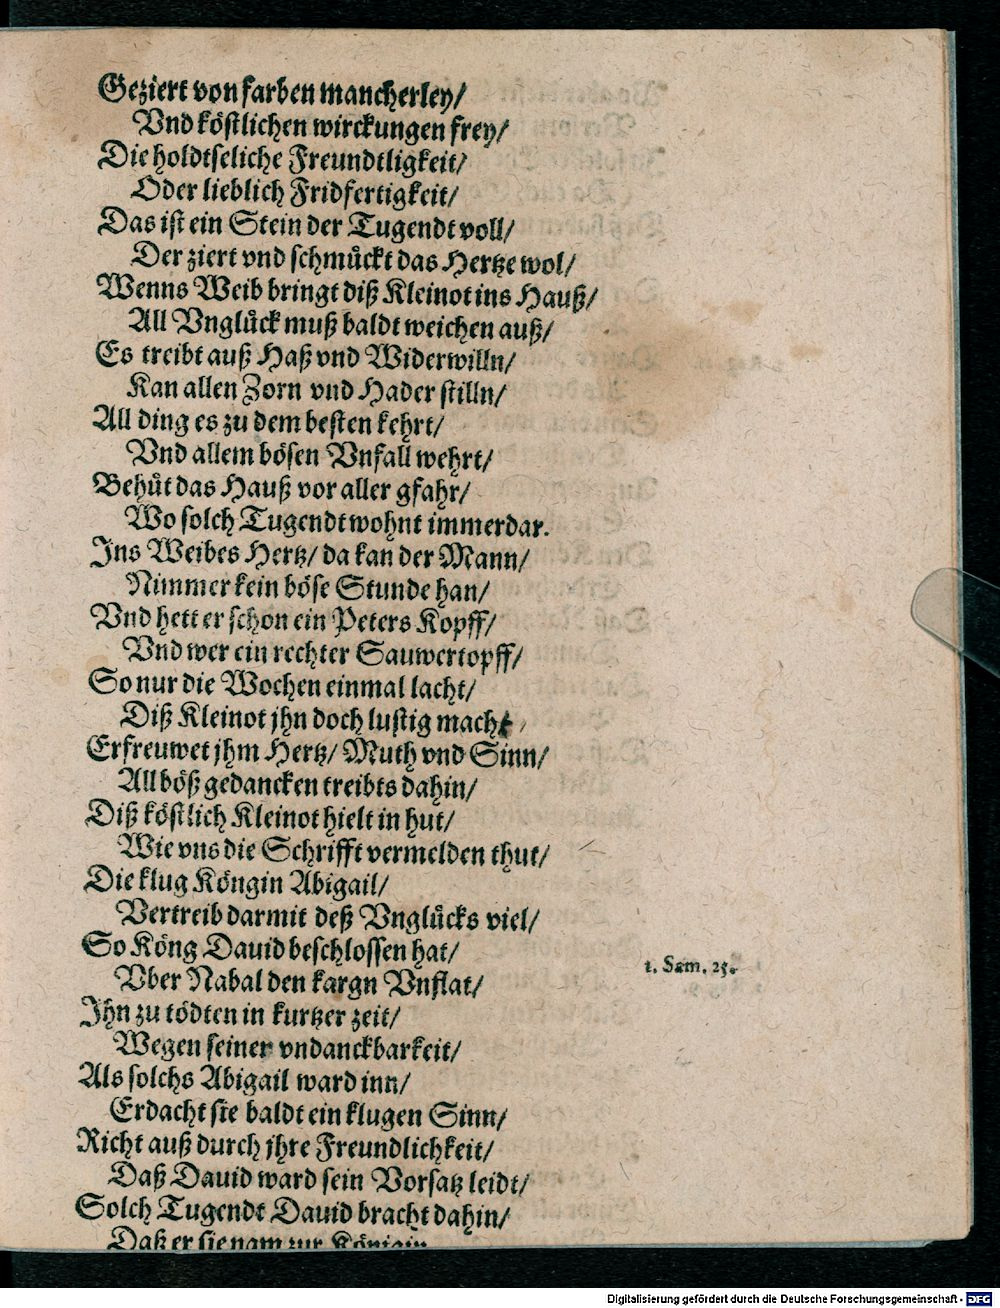 Geziert von farben mancherley/
Vnd köstlichen wirckungen frey/
Die holdtseliche Freundtligkeit/
Oder lieblich Fridfertigkeit/
Das ist ein Stein der Tugendt voll/
Der ziert vnd schmückt das Hertze wol/
Wenns Weib bringt diß Kleinot ins Hauß/
All Vnglück muß baldt weichen auß/
Es treibt auß Haß vnd Widerwilln/
Kan allen Zorn vnd Hader stilln/
All ding es zu dem besten kehrt/
Vnd allem bösen Vnfall wehrt/
Behüt das Hauß vor aller gfahr/
Wo solch Tugendt wohnt immerdar.
Ins Weibes Hertz/ da kan der Mann/
Nimmer kein böse Stunde han/
Vnd hett er schon ein Peters Kopff/
Vnd wer ein rechter Sauwertopff/
So nur die Wochen einmal lacht/
Diß Kleinot jhn doch lustig macht/
Erfreuwet jhm Hertz/ Muth vnd Sinn/
All böß gedancken treibts dahin/
Diß köstlich Kleinot hielt in hut/
Wie vns die Schrifft vermelden thut/
Die klug Köngin Abigail/
Vertreib darmit deß Vnglücks viel/
So Köng Dauid beschlossen hat/
Vber Nabal den kargn Vnflat/
1. Sam. 25.
Ihn zu tödten in kurtzer zeit/
Wegen seiner vndanckbarkeit/
Als solchs Abigail ward inn/
Erdacht sie baldt ein klugen Sinn/
Richt auß durch jhre Freundlichkeit/
Daß Dauid ward sein Vorsatz leidt/
Solch Tugendt Dauid bracht dahin/
Daß er sie nam zur Königin
Digitalisierung gefördert durch die Deutsche Forschungsgemeinschaft - DFG